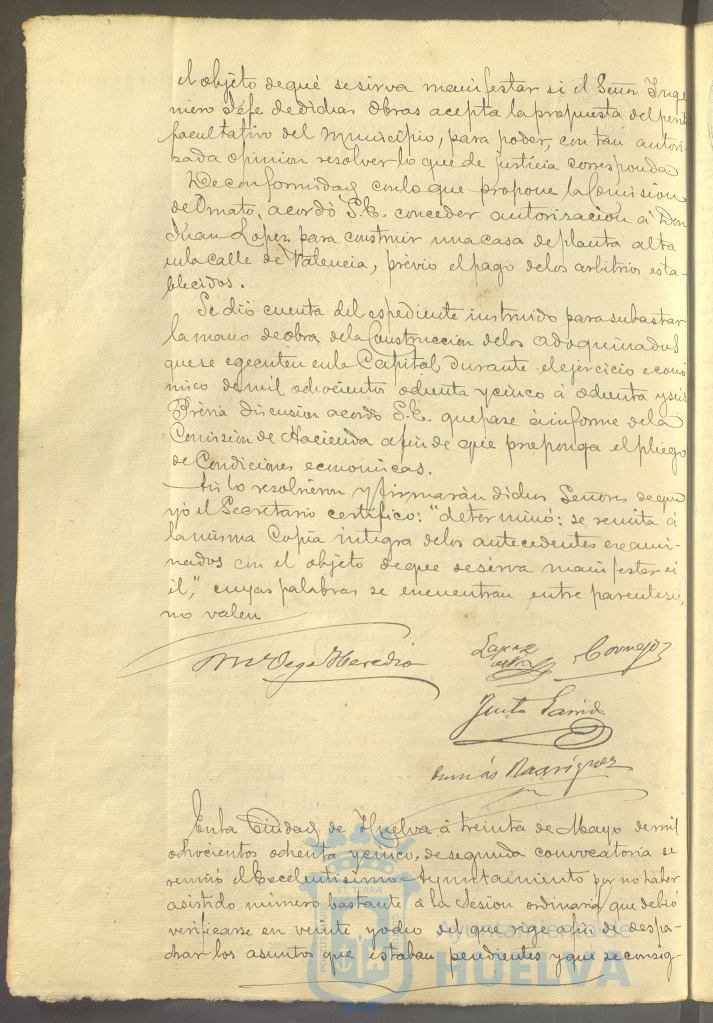 el objeto de qué se sirva manifestar si el Señor Inge
niero Jefe de dichas Obras acepta la propuesta del perito
facultativo del Municipio, para poder, con tan autori-
zada opinion resolver lo que de justicia corresponda
De conformidad con lo que propone la Comision
de Ornato, acordó S.E. conceder autorisacion á Don
Juan Lopez para construir una casa de planta alta
en la calle de Valencia, previo el pago de los arbitrios esta-
blecidos.
Se dió cuenta del espediente instruido para subastar
la mano de obra de la Construccion de los adoquinados
que se egecuten en la Capital durante el ejercicio econó
mico de mil ochocientos ochenta y cinco á ochenta y seis
Prévia discusion acordó S.E. que pase á informe de la
Comision de Hacienda a fin de que proponga el pliego
de Condiciones economicas.
Asi lo resolvieron y firmarán dichos Señores de que
yo el Secretario certifico: "determinó: se remita á
la misma Copia integra de los antecedentes exami-
nados con el objeto de que se sirva manifestar si
el," cuyas palabras se encuentran entre parentesis,
no valen
Vega Heredia
Cornejo
Justo Garrido
Tomás Rodríguez
En la Ciudad de Huelva á treinta de Mayo de mil
ochocientos ochenta y cinco, de segunda convocatoria se
reunió el Excelentisimo Ayuntamiento por no haber
asistido número bastante á la Sesion ordinaria que debió
verificarse en veinte y ocho del que rige a fin de despa-
char los asuntos que estaban pendientes y que se consig-
Ayuntamiento de
HUELVA